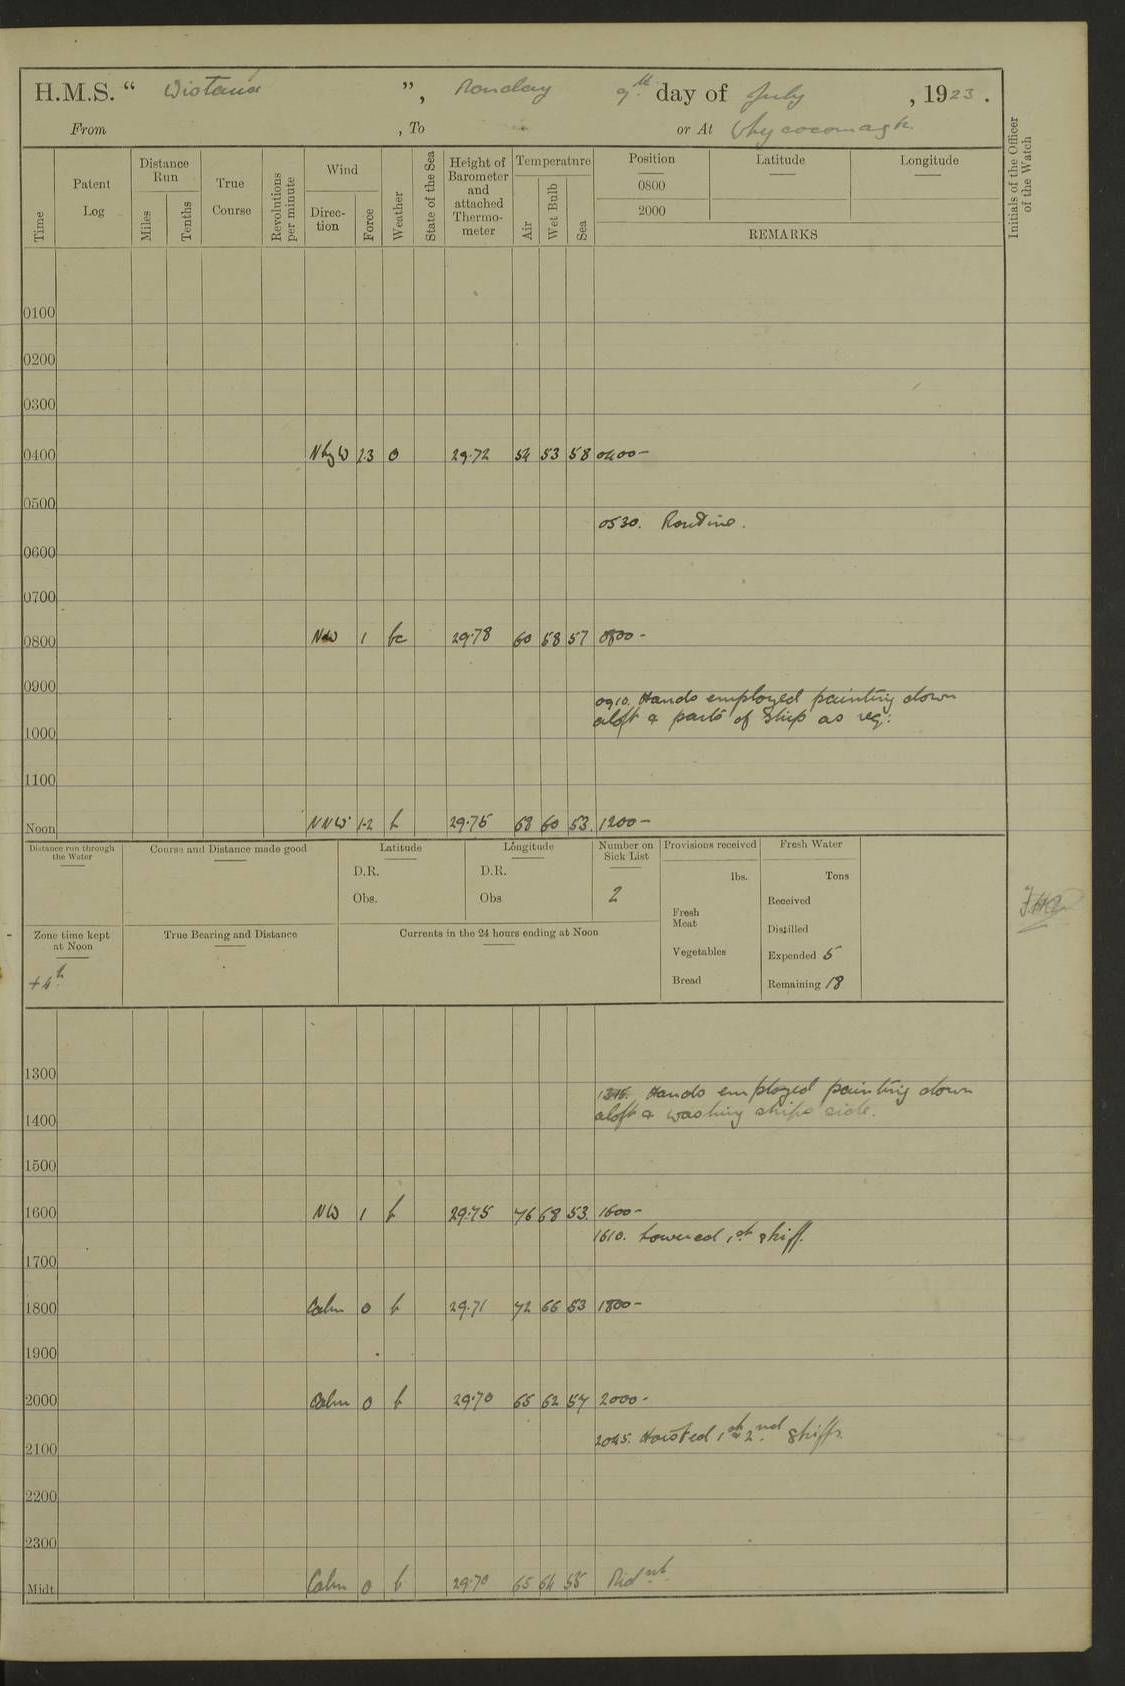 H.M.S. " Wistaria ", Monday 9th day of July, 1923.
From , To or At Whycocomagh.
Time
Patent Log
Distance Run
Miles
Tenths
True Course
Revolutions per minute
Wind
Direc-tion
Force
Weather
State of the Sea
Height of Barometer and attached Thermo-meter
Temperature
Air
Wet Bulb
Sea
Position
0800
2000
Latitude
Longitude
REMARKS
Initials of the Officer of the Watch
0100
0200
0300
0400 N by W 2.3 o 29.72 54 53 58 0400-
0500
0530. Routine.
0600
0700
0800 NW 1 bc 29.78 60 58 57 0800-
0900
0910. Hands employed painting down
aloft & parts of Ship as req:
1000
1100
Noon NNW 1-2 b 29.75 68 60 53. 1200-
Distance run through the Water
Course and Distance made good
Latitude
D.R.
Obs.
Longitude
D.R.
Obs
Number on Sick List
2
Provisions received
lbs.
Fresh Meat
Vegetables
Bread
Fresh Water
Tons
Received
Distilled
Expended 5
Remaining 18
Zone time kept at Noon
+4h
True Bearing and Distance
Currents in the 24 hours ending at Noon
1300
1315. Hands employed painting down
aloft & washing ships side.
1400
1500
1600 NW 1 b 29.75 76 68 53. 1600-
1610. Lowered 1st skiff.
1700
1800 Calm 0 b 29.71 72 66 53 1800-
1900
2000 Calm 0 b 29.70 65 62 57 2000-
2045. Hoisted 1st & 2nd skiffs.
2100
2200
2300
Midt. Calm 0 b 29.70 65 64 55 Midnt.